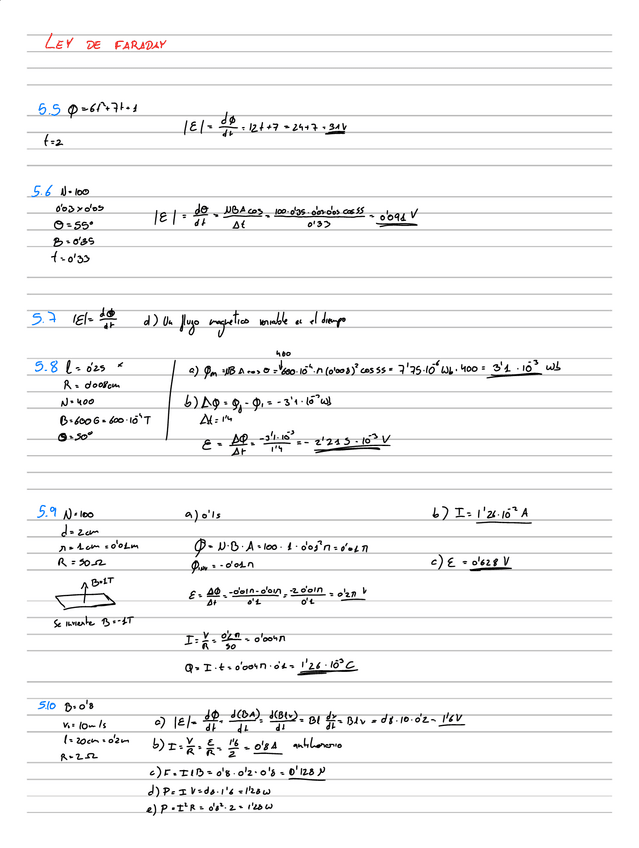 LEY DE FARADAY
5.5 Φ=6t²+7t+1
|ε| = dΦ/dt = 12t+7 = 24+7 = 31V
t=2
5.6 N=100
0'03 x 0'05
θ=55°
B=0'35
t=0'33
|ε| = dΦ/dt = NBA cos/Δt = 100·0'35·0'03·0'05 cos 55/0'33 = 0'091 V
5.7 |ε| = dΦ/dt d) Un flujo magnetico variable en el tiempo
5.8 l = 0'25
R = 0'008cm
N=400
B=600G=600·10⁻⁴T
θ=50°
400
a) Φm = NBA cos θ = 600·10⁻⁴·π(0'008)² cos 55 = 7'75·10⁻⁶ Wb·400 = 3'1·10⁻³ Wb
b) ΔΦ = Φf - Φi = -3'1·10⁻³ Wb
Δt = 1'4
ε = ΔΦ/Δt = -3'1·10⁻³/1'4 = -2'215·10⁻³ V
5.9 N=100
d=2cm
r=1cm=0'01m
R=50Ω
B=1T
Se invierte B=-1T
a) 0'1s
Φ = N·B·A = 100·1·0'01²π = 0'01π
= -0'01π
ε = ΔΦ/Δt = -0'01π-0'01π/0'1 = -2·0'01π/0'1 = 0'2π V
I = V/R = 0'2π/50 = 0'004π
Q = I·t = 0'004π·0'1 = 1'26·10⁻³ C
b) I = 1'26·10⁻² A
c) ε = 0'628 V
5.10 B=0'8
V=10m/s
l=20cm=0'2m
R=2Ω
a) |ε| = dΦ/dt = d(BA)/dt = d(Blx)/dt = Bl dx/dt = Blv = 0'8·10·0'2 = 1'6V
b) I = V/R = ε/R = 1'6/2 = 0'8 A antihorario
c) F = IlB = 0'8·0'2·0'8 = 0'128 N
d) P = I V = 0'8·1'6 = 1'28 W
e) P = I²R = 0'8²·2 = 1'28 W